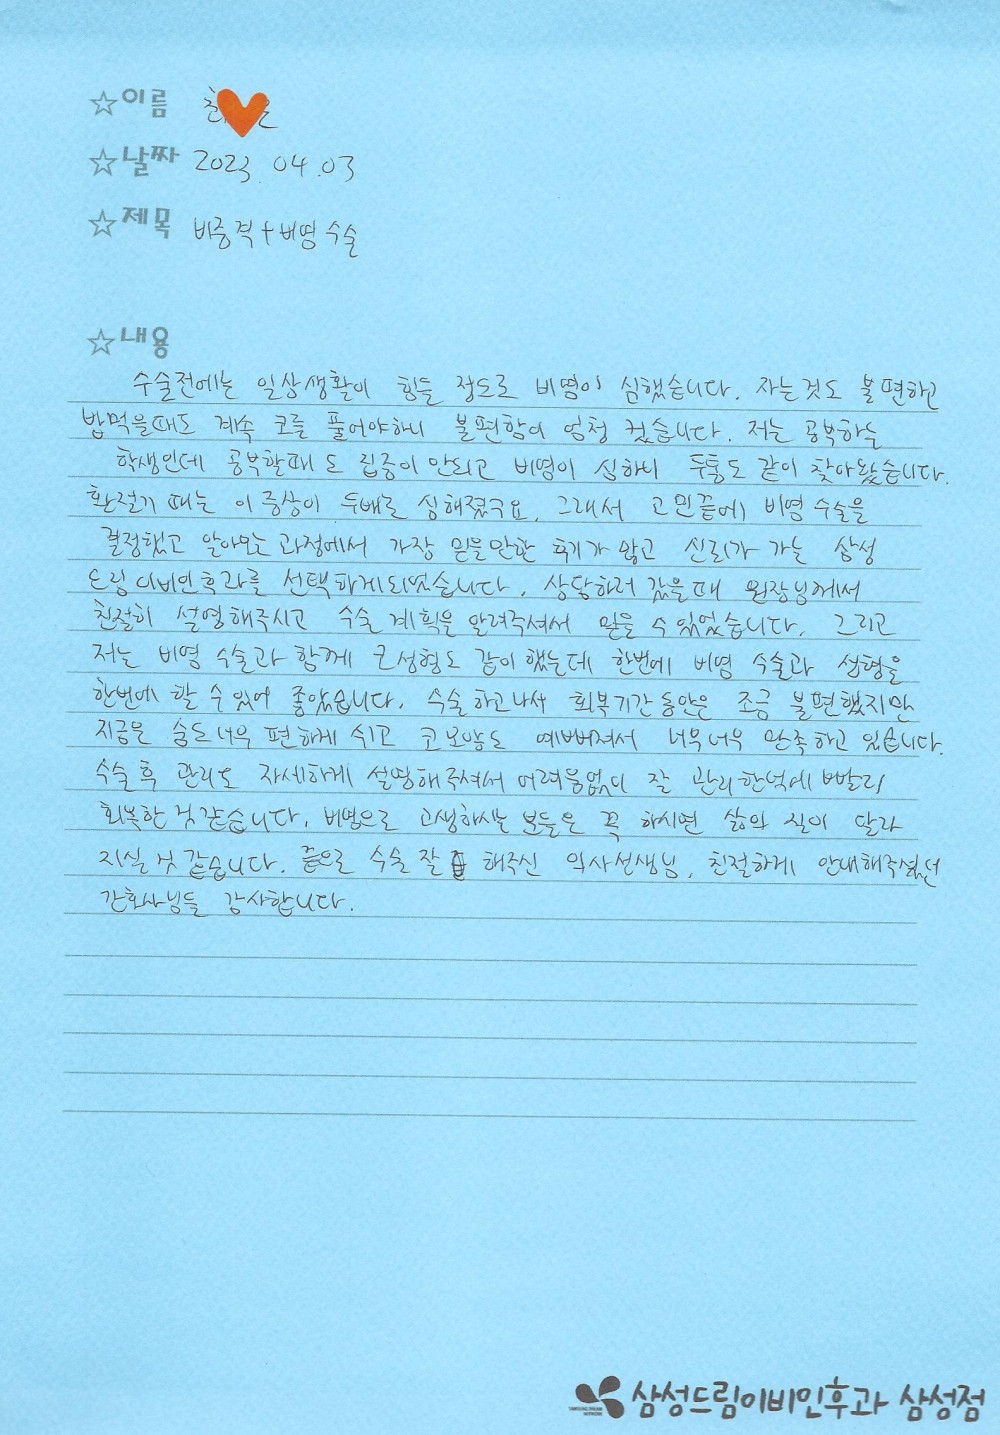 ☆이름
☆날짜 2023. 04. 03
☆제목 비중격+비염 수술
☆내용
수술전에는 일상생활이 힘든 정도로 비염이 심했습니다. 자는것도 불편하고
밥먹을때도 계속 코를 풀어야하니 불편함이 엄청 컸습니다. 저는 공부하는
학생인데 공부할때도 집중이 안되고 비염이 심하니 두통도 같이 찾아왔습니다.
환절기 때는 이 증상이 두배로 심해졌구요. 그래서 고민끝에 비염 수술을
결정했고 알아보는 과정에서 가장 믿을만한 후기가 많고 신뢰가 가는 삼성
드림이비인후과를 선택하게되었습니다. 상담하러 갔을때 원장님께서
친절히 설명해주시고 수술 계획을 알려주셔서 믿을 수 있었습니다. 그리고
저는 비염 수술과 함께 코성형도 같이 했는데 한번에 비염 수술과 성형을
한번에 할 수 있어 좋았습니다. 수술하고나서 회복기간 동안은 조금 불편했지만
지금은 숨도 너무 편하게 쉬고 코 모양도 예뻐져서 너무너무 만족하고 있습니다.
수술 후 관리도 자세하게 설명해주셔서 어려움없이 잘 관리한덕에 빨리
회복한 것같습니다. 비염으로 고생하시는 분들은 꼭 하시면 삶의 질이 달라
지실 것 같습니다. 끝으로 수술 잘 해주신 의사선생님, 친절하게 안내해주셨던
간호사님들 감사합니다.
삼성드림이비인후과 삼성점